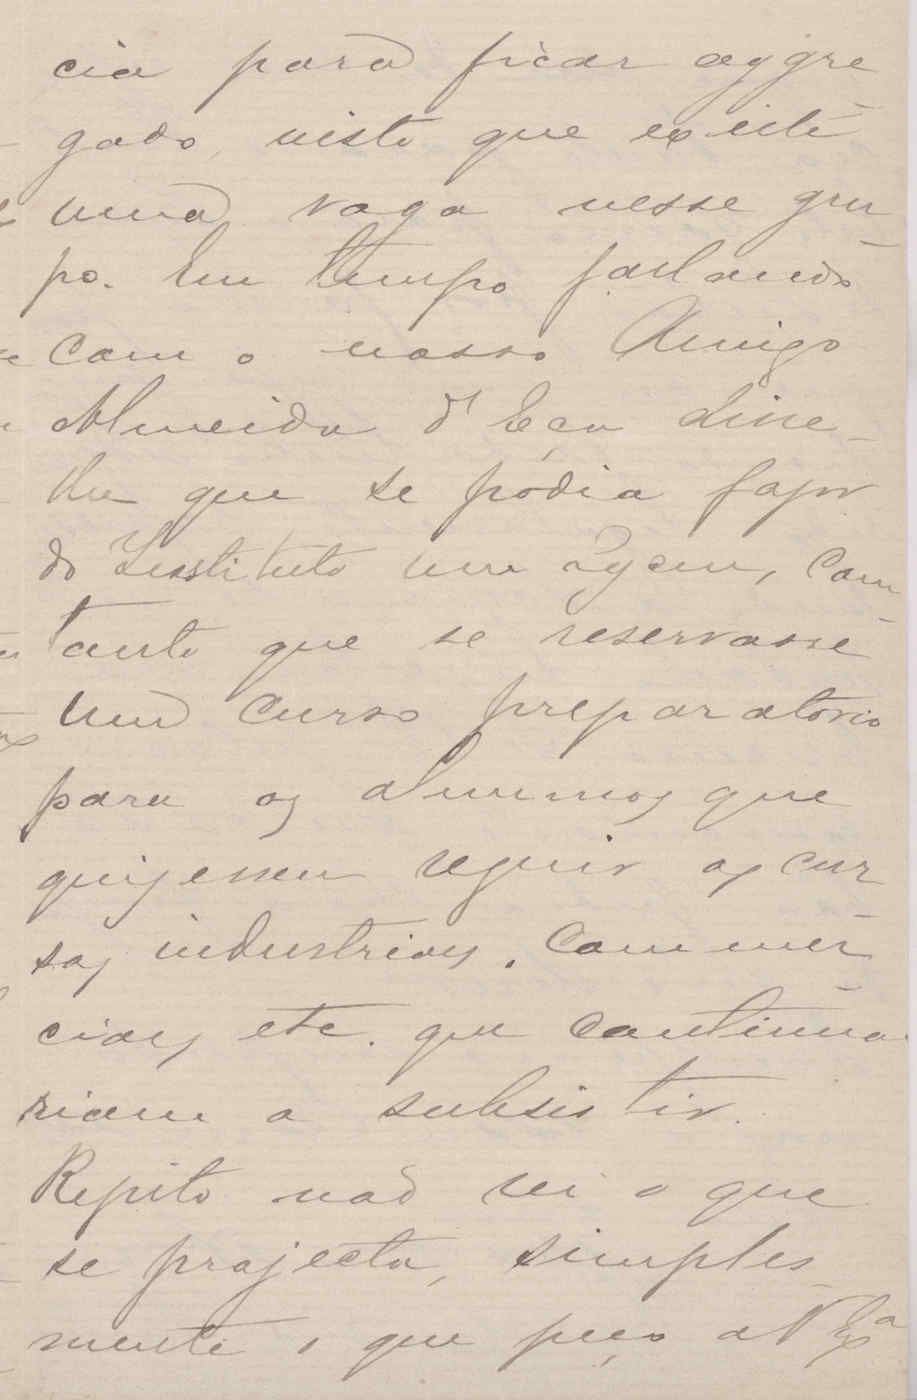 cia para ficar aggre-
gado, visto que existe
uma vaga nesse gru-
po. Em tempo fallamos
com o nosso Amigo
Almeida d'Eça disse-
lhe que se podia fazer
do Instituto um Lyceu, com-
tanto que se reservasse
um curso preparatorio
para os alumnos que
quizessem seguir os cur-
sos industriaes, commer-
ciaes etc. que continua-
riam a subsistir.
Repito não sei o que
se projecta, simples-
mente o que peço a V Exª